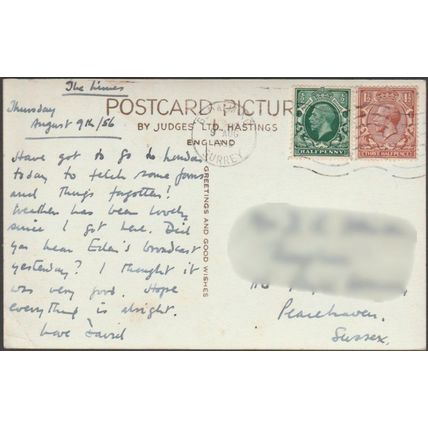 The Limes
Thursday
August 9th/56
POSTCARD PICTUR
BY JUDGES LTD. HASTINGS
ENGLAND
9 AUG
SURREY
HALFPENNY
THREE HALFPENCE
1½
Have got to go to London
today to fetch some
and things forgotten!
Weather has been lovely
since I got here. Did
you hear Eden's broadcast
yesterday? I thought it
was very good. Hope
everything is alright.
Love David
GREETINGS AND GOOD WISHES
Peacehaven.
Sussex.